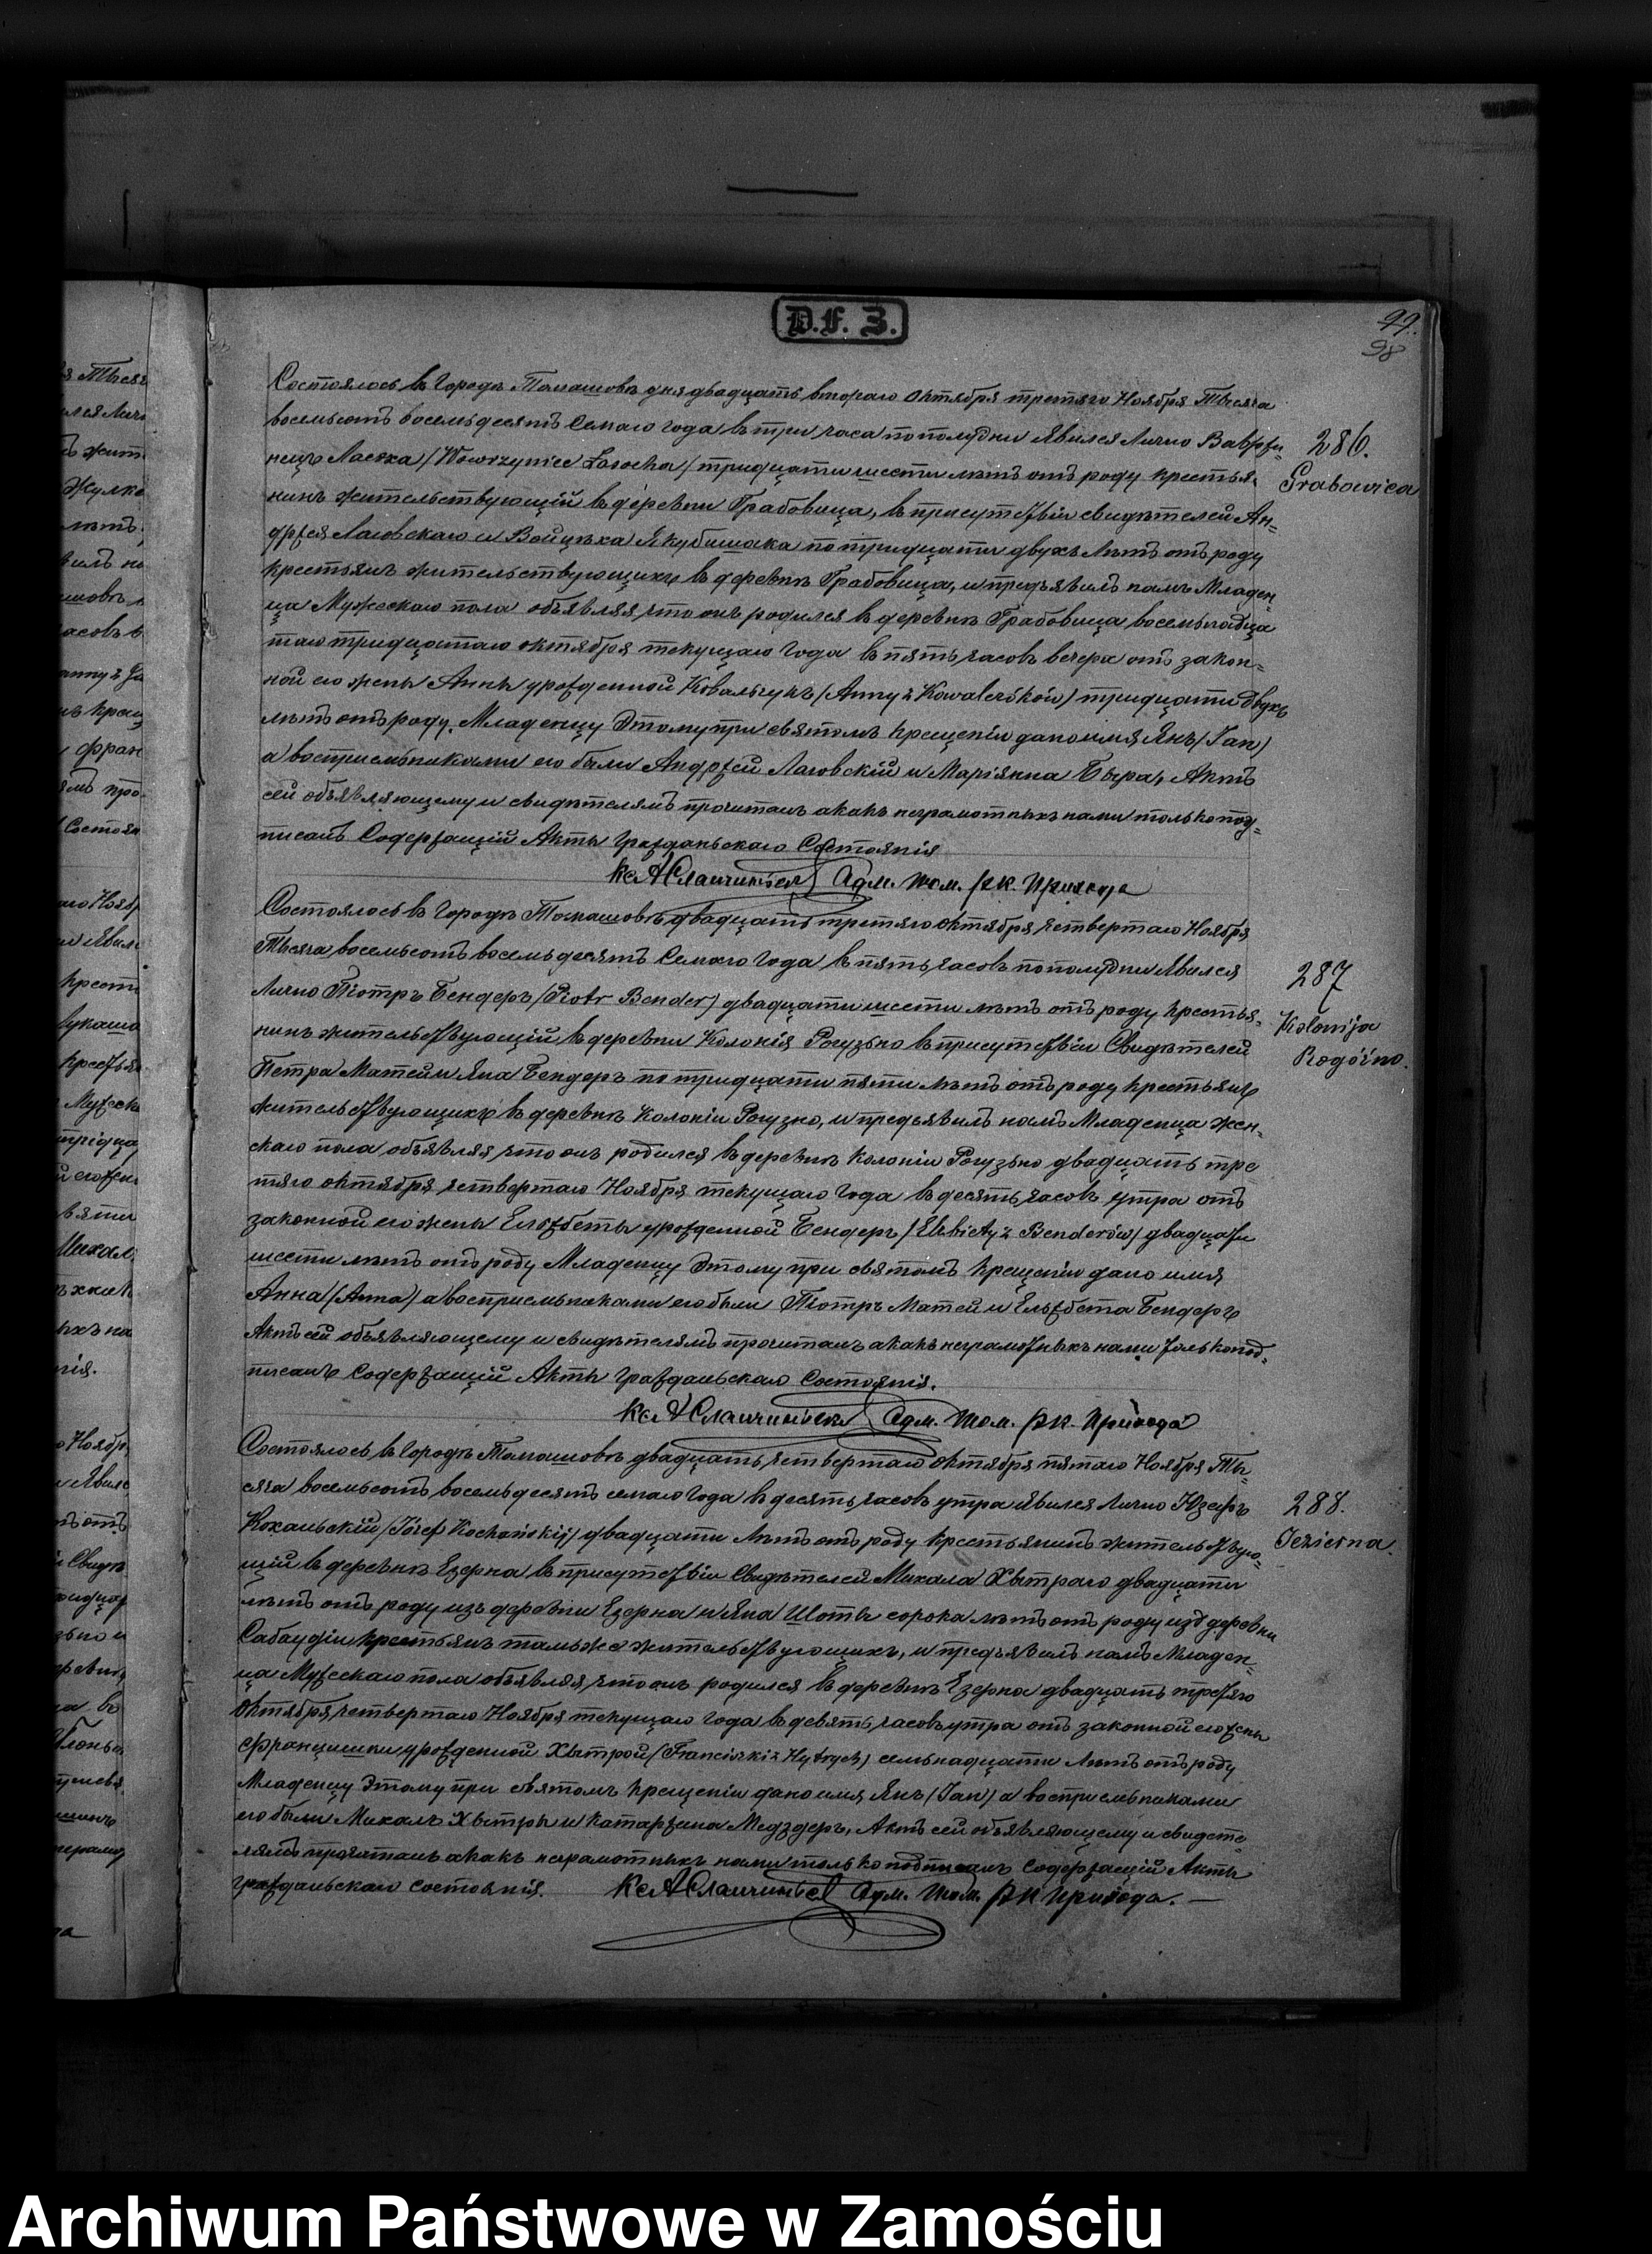 D.f. 3.
99.
98
Состоялось въ Городѣ Томашовѣ дня двадцать втораго Октября третяго Ноября Тысяча
восемьсотъ восемьдесятъ Семаго года въ три часа по полудни Явился Лично Ваврзы-
нецъ Ласоха /Wawrzyniec Lasocha/ тридцати шести лѣтъ отъ роду крестья-
нинъ жительствующій въ деревни Грабовица, въ присутствіи свидѣтелей Ан-
држея Лаговскаго и Войцѣха Якубишака по тридцати двухъ лѣтъ отъ роду
крестьянъ жительствующихъ въ деревнѣ Грабовица, и предъявилъ намъ Младен-
ца Мужескаго пола объявляя, что онъ родился въ деревнѣ Грабовица восемьнадца
таго тридцатаго октября текущаго Года въ пять часовъ вечера отъ закон-
ной его жены Анны урожденной Ковальчукъ /Anny z Kowalczuków/ тридцати Двухъ
лѣтъ отъ роду. Младенцу Этому при святомъ Крещеніи дано имя Янъ /Jan/
а воспріемниками его были Андржей Лаговскій и Маріянна Быра, Актъ
сей объявляющему и свидѣтелямъ прочитанъ а какъ неграмотныхъ нами только под-
писанъ Содержащій Акты Гражданскаго Состоянія
Кс А Адм. Том. РК. Прихода
286.
Grabowica
Состоялось въ Городѣ Томашовѣ двадцать третяго Октября, четвертаго Ноября
Тысяча восемьсотъ восемьдесятъ Семаго Года въ пять часовъ по полудни Явился
Лично Піотръ Бендеръ /Piotr Bender/ двадцати шести лѣтъ отъ роду крестья-
нинъ жительствующій въ деревни Колонія Рогузьно въ присутствіи Свидѣтелей
Петра Матей и Яна Бендеръ по тридцати пяти лѣтъ отъ роду крестьянъ
жительствующихъ въ деревнѣ Колоніи Рогузно, и предъявилъ намъ Младенца жен-
скаго пола объявляя, что онъ родился въ деревнѣ Колоніи Рогузьно двадцать тре
тяго октября четвертаго Ноября текущаго Года въ десять часовъ утра отъ
законной его жены Елжбеты урожденной Бендеръ /Elżbiety z Benderów/ двадцати
шести лѣтъ отъ роду Младенцу Этому при святомъ Крещеніи дано имя
Анна /Anna/ а воспріемниками его были Піотръ Матей и Ельжбета Бендеръ
Актъ сей объявляющему и свидѣтелямъ прочитанъ а какъ неграмотныхъ нами только под-
писанъ Содержащій Акты Гражданскаго Состоянія.
Кс А Адм. Том. РК. Прихода
287
Kolonija
Rogóźno.
Состоялось въ Городѣ Томашовѣ двадцать четвертаго Октября пятаго Ноября Ты-
сяча восемьсотъ восемьдесятъ семаго Года въ десять часовъ утра явился Лично Юзефъ
Коханьскій /Józef Kochański/ двадцати лѣтъ отъ роду крестьянинъ жительствую-
щій въ деревнѣ Езерна въ присутствіи Свидѣтелей Михала Хытраго двадцати
лѣтъ отъ роду изъ деревни Езерна и Яна Шоты сорока лѣтъ отъ роду изъ деревни
Сабаудіи крестьянъ тамъже жительствующихъ, и предъявилъ намъ Младен-
ца Мужескаго пола объявляя, что онъ родился въ деревнѣ Езерна двадцать третяго
Октября, четвертаго Ноября текущаго Года въ девять часовъ утра отъ законной его жены
Францишки урожденной Хытрой /Franciszki z Hytrych/ семьнадцати лѣтъ отъ роду
Младенцу Этому при святомъ Крещеніи дано имя Янъ /Jan/ а воспріемниками
его были Михалъ Хытры и Катаржина Медздеръ, Актъ сей объявляющему и свидѣте
лямъ прочитанъ а какъ неграмотныхъ нами только подписанъ Содержащій Акты
гражданскаго состоянія. Кс А Адм. Том. РК Прихода.
288.
Jezierna.
Archiwum Państwowe w Zamościu